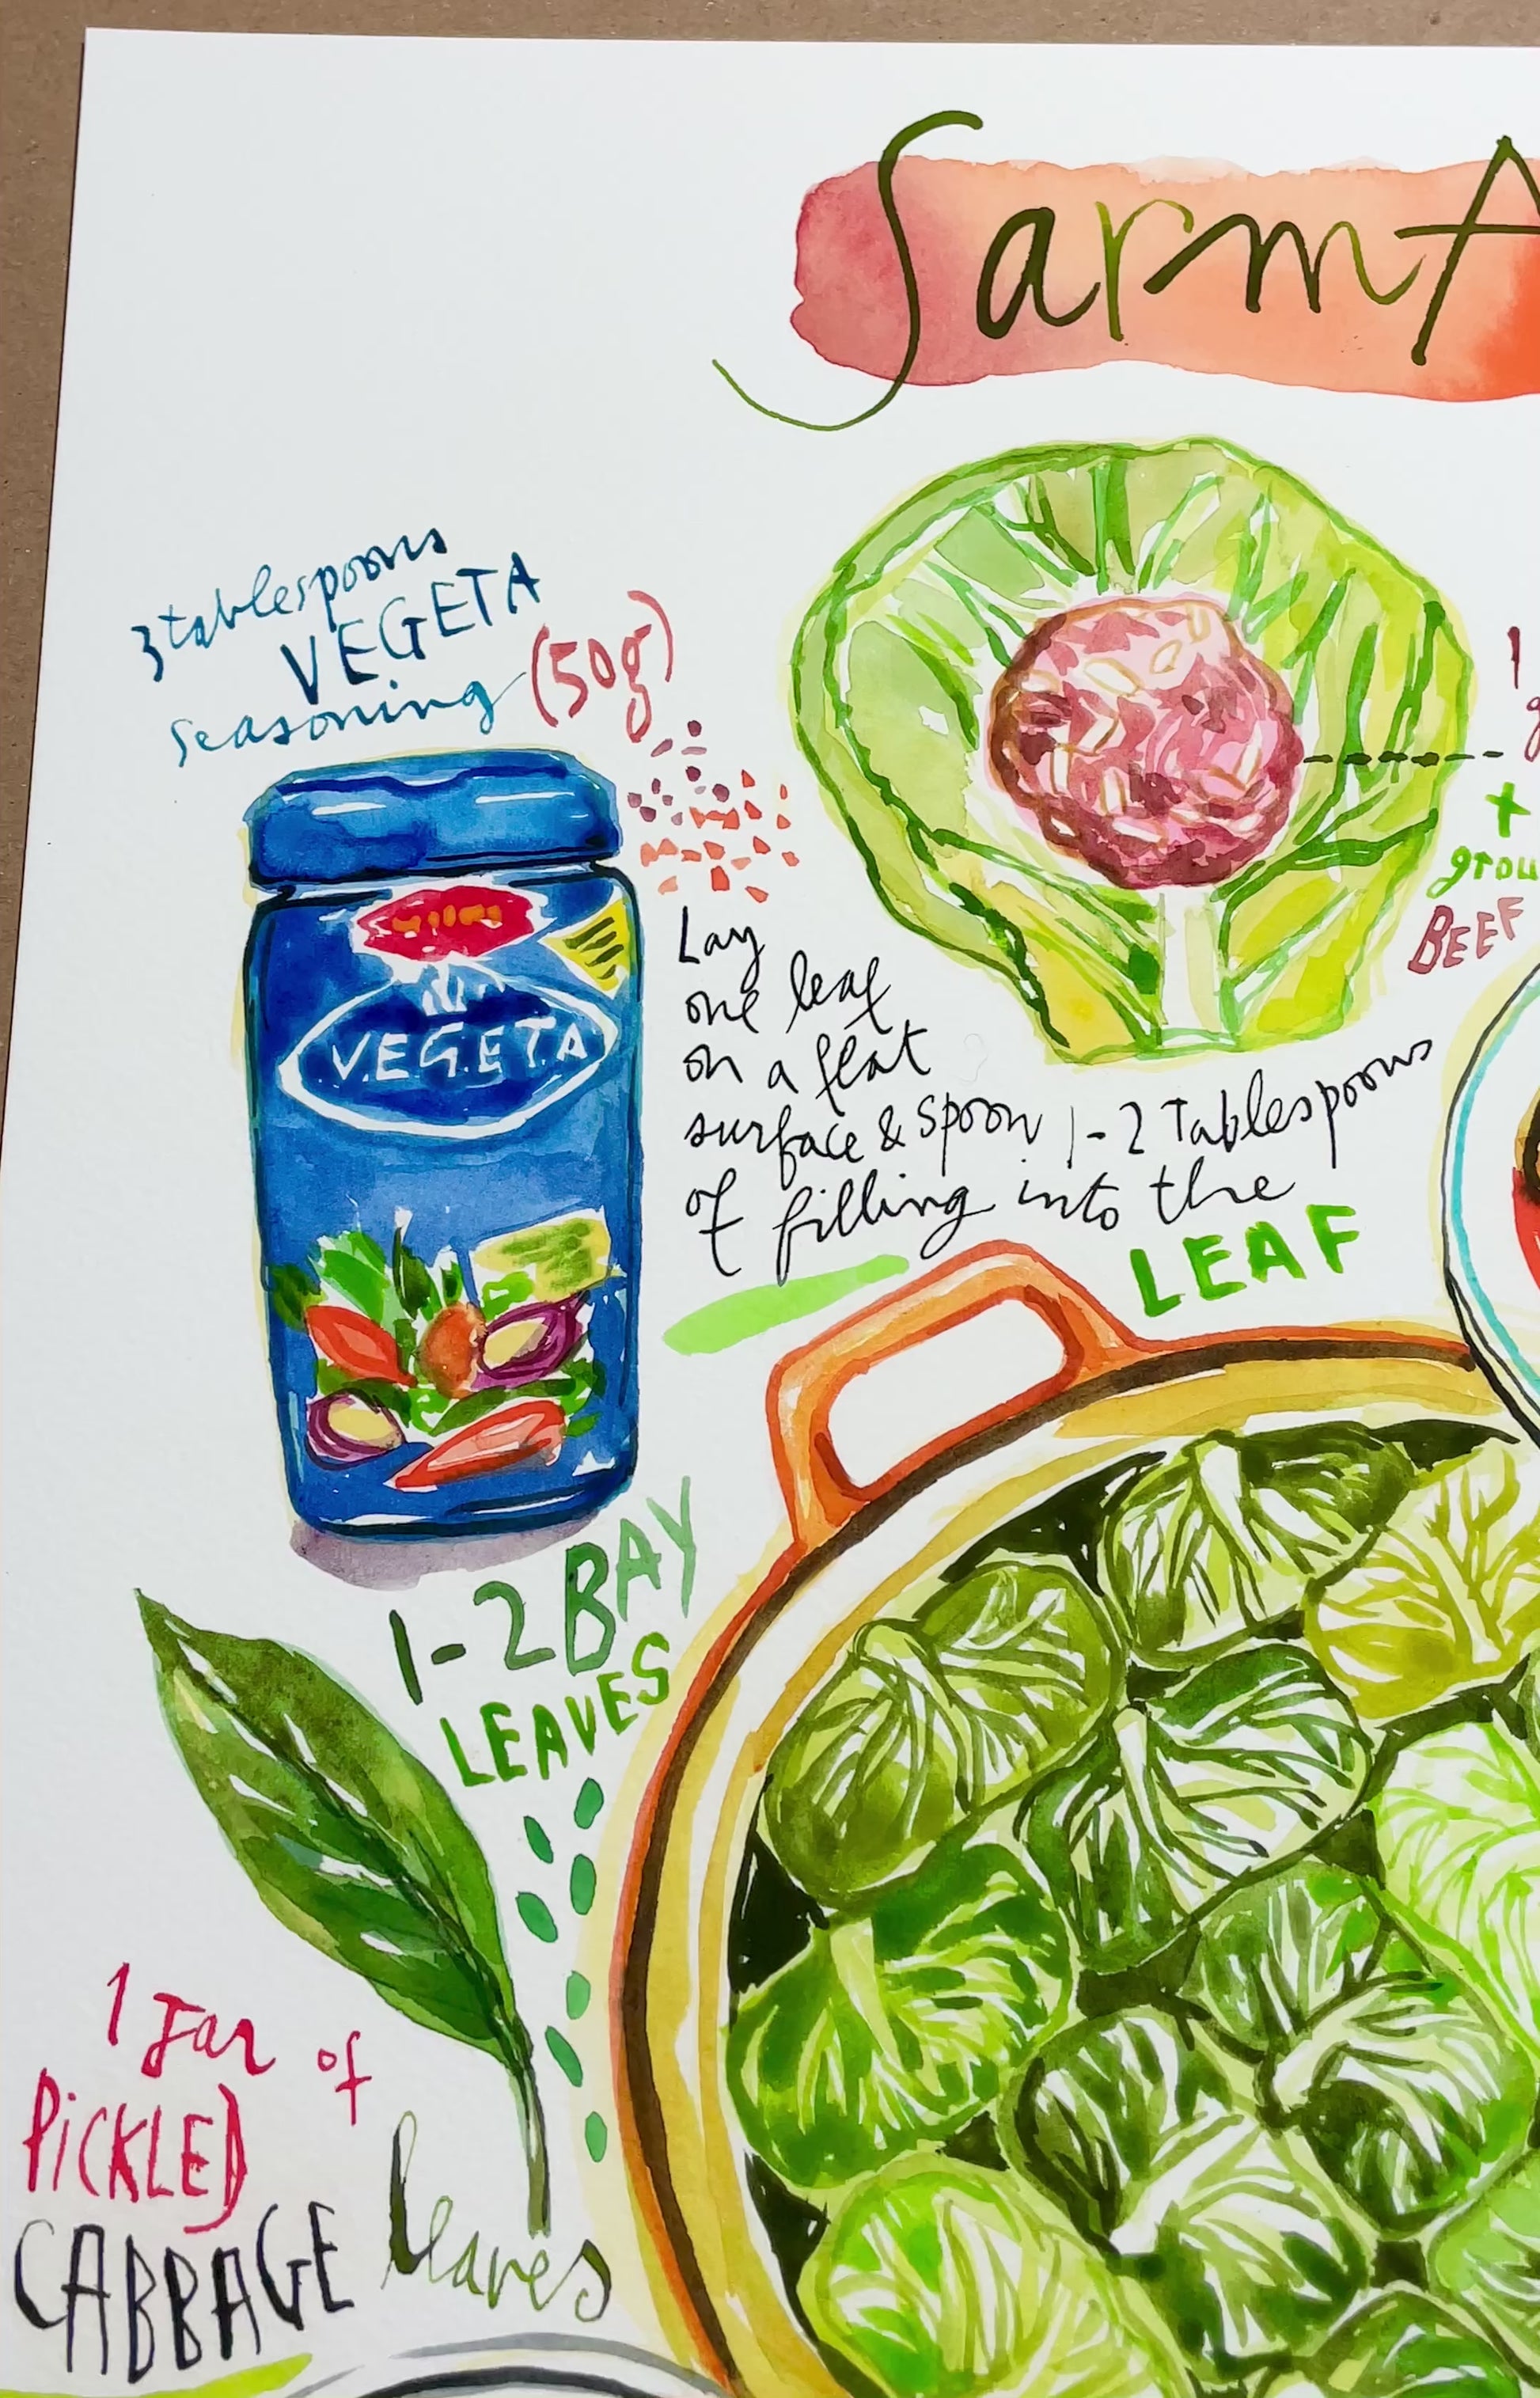 SarmA
3 tablespoons
VEGETA
seasoning (50g)
VEGETA
+
BEEF
Lay
one leaf
on a flat
surface & spoon 1-2 Tablespoons
of filling into the
LEAF
1-2 BAY
LEAVES
1 Jar of
PiCKLED
CABBAGE leaves